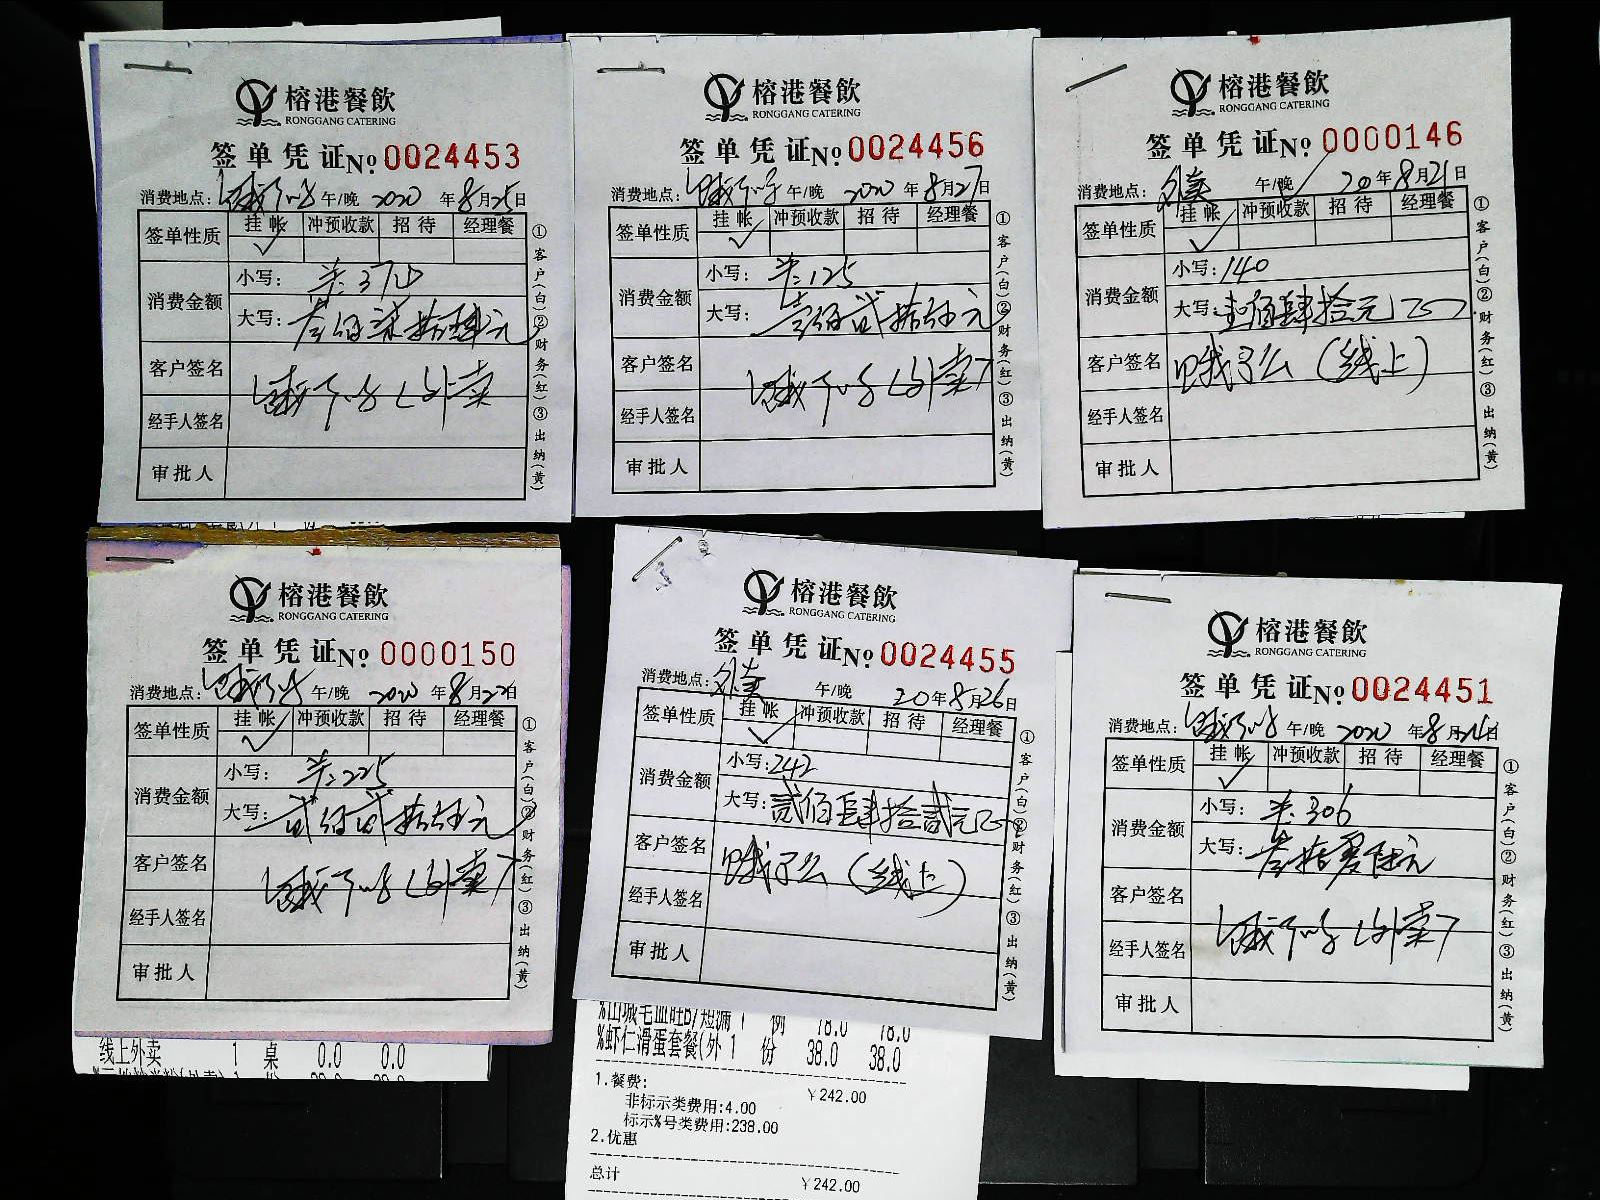 榕港餐飲
RONGGANG CATERING
签单凭证 No 0024453
消费地点: 饿了吗 午/晚 2020 年 8 月 25 日
签单性质 挂帐 冲预收款 招待 经理餐
✓
消费金额 小写: 374
大写: 叁佰柒拾肆元
客户签名 饿了吗(外卖
经手人签名
审批人
①客户(白)②财务(红)③出纳(黄)
榕港餐飲
RONGGANG CATERING
签单凭证 No 0024456
消费地点: 饿了吗 午/晚 2020 年 8 月 27 日
签单性质 挂帐 冲预收款 招待 经理餐
✓
消费金额 小写: 125
大写: 壹佰贰拾伍元
客户签名 饿了吗(外卖)
经手人签名
审批人
①客户(白)②财务(红)③出纳(黄)
榕港餐飲
RONGGANG CATERING
签单凭证 No 0000146
消费地点: 外卖 午/晚 20 年 8 月 21 日
签单性质 挂帐 冲预收款 招待 经理餐
✓
消费金额 小写: 140
大写: 壹佰肆拾元
客户签名 饿了么(线上)
经手人签名
审批人
①客户(白)②财务(红)③出纳(黄)
榕港餐飲
RONGGANG CATERING
签单凭证 No 0000150
消费地点: 饿了吗 午/晚 2020 年 8 月 22 日
签单性质 挂帐 冲预收款 招待 经理餐
✓
消费金额 小写: 225
大写: 贰佰贰拾伍元
客户签名 饿了吗(外卖)
经手人签名
审批人
①客户(白)②财务(红)③出纳(黄)
线上外卖 1 桌 0.0 0.0
榕港餐飲
RONGGANG CATERING
签单凭证 No 0024455
消费地点: 外卖 午/晚 20 年 8 月 26 日
签单性质 挂帐 冲预收款 招待 经理餐
✓
消费金额 小写: 242
大写: 贰佰肆拾贰元
客户签名 饿了么(线上)
经手人签名
审批人
①客户(白)②财务(红)③出纳(黄)
%山城毛血旺B/短满 1 例 78.0 78.0
%虾仁滑蛋套餐(外 1 份 38.0 38.0
1.餐费: ￥242.00
非标示类费用:4.00
标示%号类费用:238.00
2.优惠
总计 ￥242.00
榕港餐飲
RONGGANG CATERING
签单凭证 No 0024451
消费地点: 饿了吗 午/晚 2020 年 8 月 24 日
签单性质 挂帐 冲预收款 招待 经理餐
✓
消费金额 小写: 306
大写:
客户签名 饿了吗(外卖)
经手人签名
审批人
①客户(白)②财务(红)③出纳(黄)